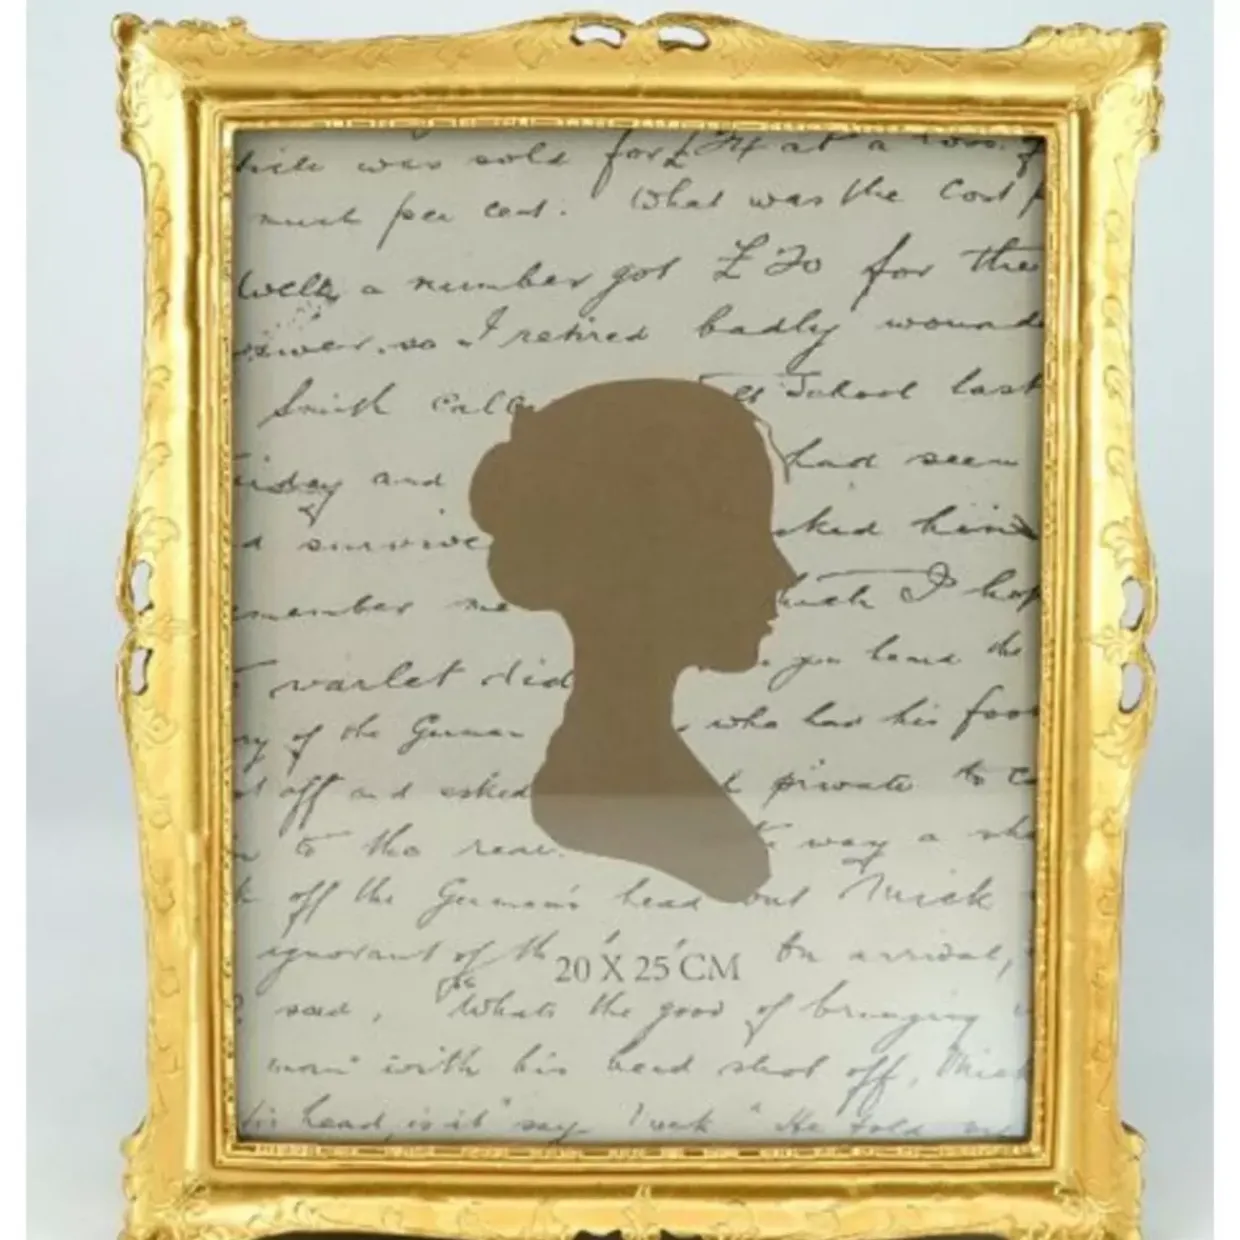 was sold for £24 at a loss of
much per cent. What was the Cost
Well, a number got £20 for the
so I retired badly wounde
Smith Calle School last
and had seen
survive ked him
member me I hop
varlet did you heard the
of the German who has his foo
off and asked private to c
to the rear. way a sho
off the German's head but Mick
ignorant of th On arrival,
20 X 25 CM
said, "Whats the good of bringing
man" with his head shot off, Mick
head, is it" say Mick "He told